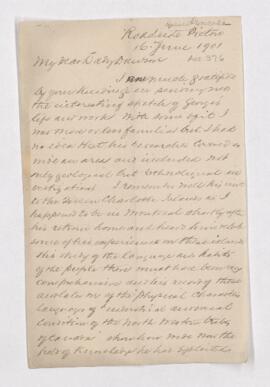 Roadside Pictou
16 June 1901
My dear Lady Dawson
I am much gratified
by your kindness in sending me
the interesting sketch of George's
life and work. With some of it I
was more or less familiar but I had
no idea that his researches covered so
wide an area and included not
only geological but Ethnological in
vestigations. I remember well his visit
to the Queen Charlotte Islands as I
happened to be in Montreal shortly after
his return home and heard him relate
some of his experiences on these islands
His study of the language and habits
of the people there must have been very
comprehensive and his record of these
and also of the physical characters
languages & industrial and social
condition of the North Western tribes
of Canada show how wide was the
field of knowledge he has exploited